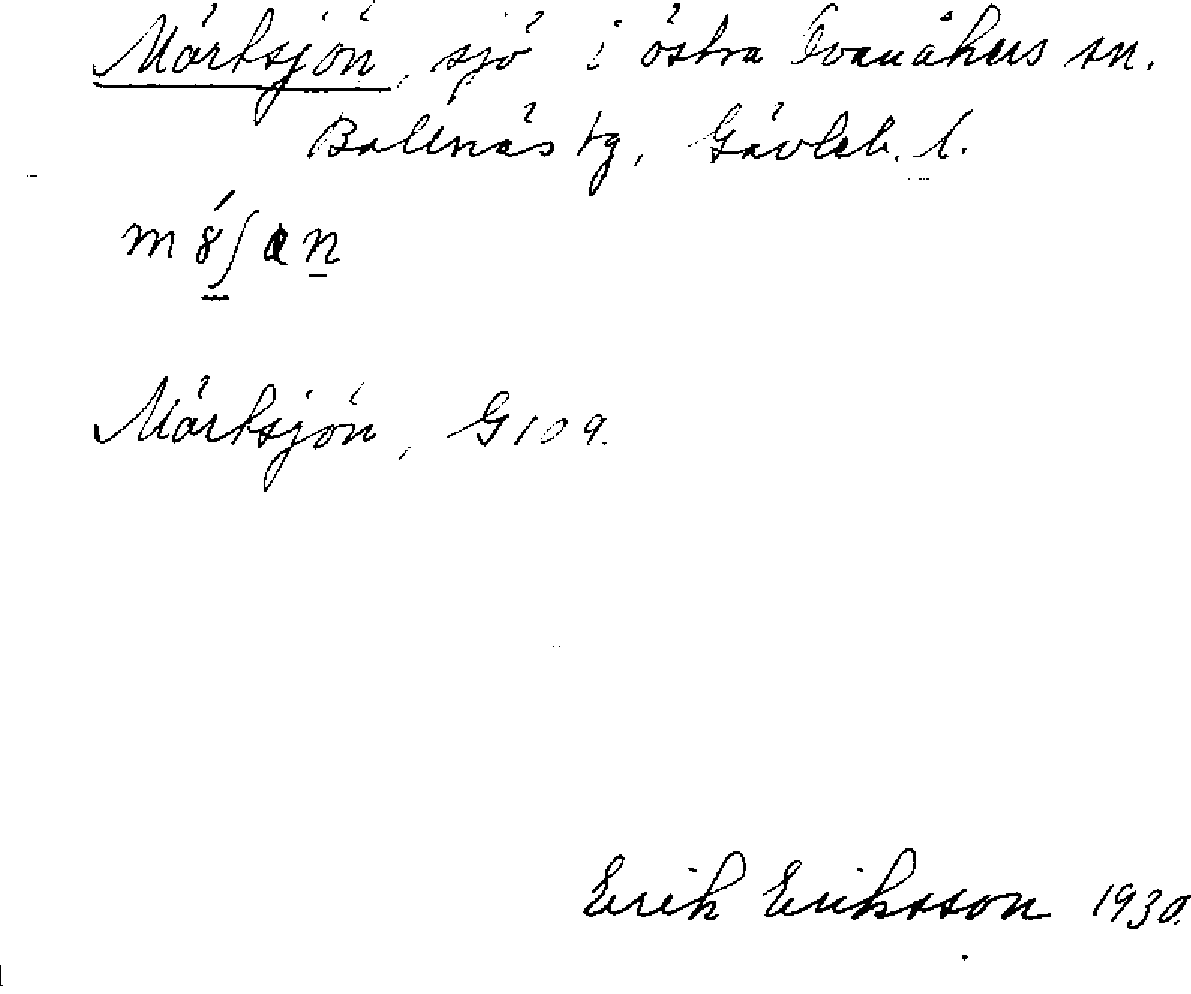 Mörtsjön, sjö i östra Ovanåkers sn.
Bollnäs tg, Gävleb. l.
Mörtsjön, G 109.
Erik Eriksson 1930.